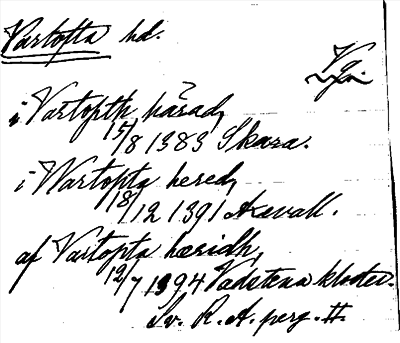 Vartofta hd.
Vg.
i Vartopth härad
15/8 1383 Skara.
i Wartopta hered
18/12 1391 Axevall.
af Vartopta hæridh
12/7 1394 Vadstena kloster.
Sv. R. A. perg. II.